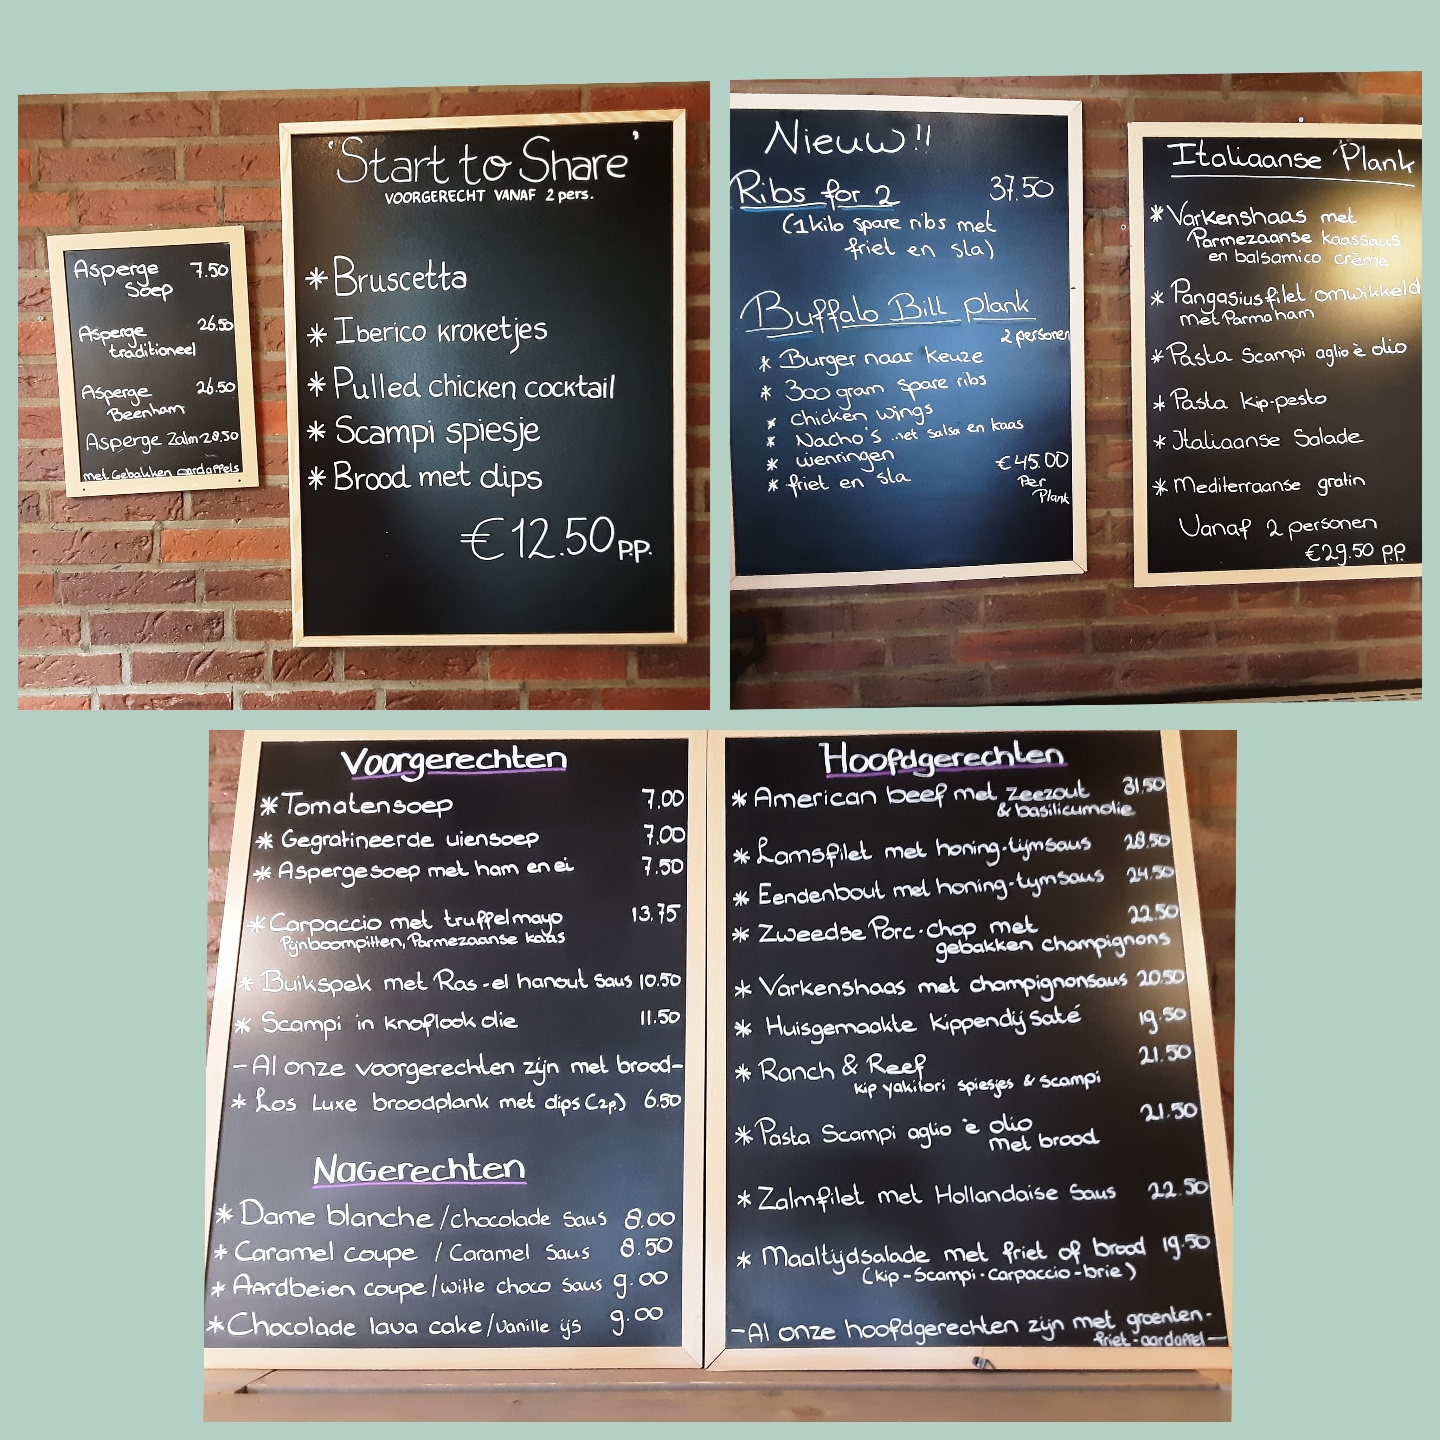 Asperge 7.50
Soep
Asperge 26.50
traditioneel
Asperge 26.50
Beenham
Asperge Zalm 28.50
met Gebakken aardappels
'Start to Share'
VOORGERECHT VANAF 2 pers.
* Bruscetta
* Iberico kroketjes
* Pulled chicken cocktail
* Scampi spiesje
* Brood met dips
€12.50 p.p.
Nieuw!!
Ribs for 2 37.50
(1 kilo spare ribs met
friet en sla)
Buffalo Bill plank
2 personen
* Burger naar keuze
* 300 gram spare ribs
* Chicken wings
* Nacho's met salsa en kaas
* uienringen
* friet en sla
€45.00
Per
Plank
Italiaanse Plank
* Varkenshaas met
Parmezaanse kaassaus
en balsamico crème
* Pangasiusfilet omwikkeld
met Parmaham
* Pasta Scampi aglio è olio
* Pasta kip-pesto
* Italiaanse Salade
* Mediterraanse gratin
Vanaf 2 personen
€29.50 p.p.
Voorgerechten
* Tomatensoep 7.00
* Gegratineerde uiensoep 7.00
* Aspergesoep met ham en ei 7.50
* Carpaccio met truffelmayo 13.75
Pijnboompitten, Parmezaanse kaas
* Buikspek met Ras-el hanout saus 10.50
* Scampi in knoflook olie 11.50
-Al onze voorgerechten zijn met brood-
* Los Luxe broodplank met dips (2p.) 6.50
Nagerechten
* Dame blanche / chocolade saus 8.00
* Caramel coupe / Caramel saus 8.50
* Aardbeien coupe / witte choco saus 9.00
* Chocolade lava cake / vanille ijs 9.00
Hoofdgerechten
* American beef met zeezout 31.50
& basilicumolie
* Lamsfilet met honing-tijmsaus 28.50
* Eendenbout met honing-tymsaus 24.50
* Zweedse Porc-chop met 22.50
gebakken champignons
* Varkenshaas met champignonsaus 20.50
* Huisgemaakte kippendij saté 19.50
* Ranch & Reef 21.50
kip yakitori spiesjes & scampi
* Pasta Scampi aglio è olio 21.50
met brood
* Zalmfilet met Hollandaise saus 22.50
* Maaltijdsalade met friet of brood 19.50
(kip-scampi-carpaccio-brie)
-Al onze hoofdgerechten zijn met groenten-
friet-aardappel-